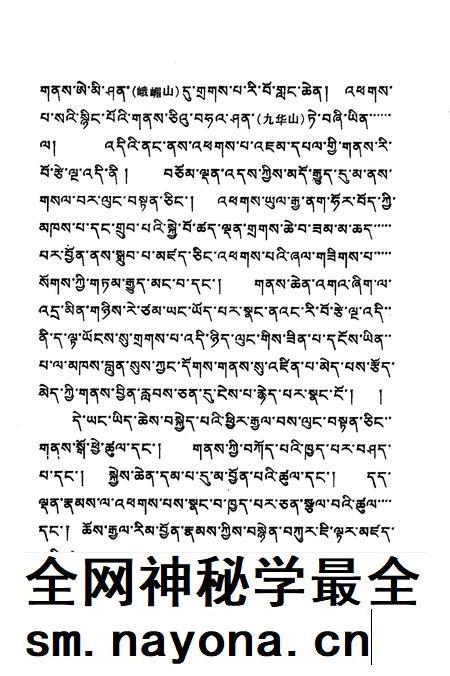 གནས་ཨེ་མི་ཤན་(峨嵋山)དུ་གྲགས་པ་རི་བོ་གླང་ཆེན། འཕགས་
པ་སའི་སྙིང་པོའི་གནས་ཅིའུ་བཧྭ་ཤན་(九华山)ཏེ་བཞི་ཡིན་……
ལ། འདིའི་ནང་ནས་འཕགས་པ་འཇམ་དཔལ་གྱི་གནས་རི་
བོ་རྩེ་ལྔ་འདི་ནི། བཅོམ་ལྡན་འདས་ཀྱིས་མདོ་རྒྱུད་དུ་མ་ནས་
གསལ་བར་ལུང་བསྟན་ཅིང་། འཕགས་ཡུལ་རྒྱ་ནག་ཧོར་བོད་ཀྱི་
མཁས་པ་དང་གྲུབ་པའི་སྐྱེ་བོ་ཚད་ལྡན་གྲགས་ཆེ་བ་ཟམ་མ་ཆད་……
པར་བྱོན་ནས་སྒྲུབ་པ་མཛད་ཅིང་འཕགས་པའི་ཞལ་གཟིགས་པ་……
སོགས་ཀྱི་གཏམ་རྒྱུད་མང་བ་དང་། གནས་ཆེན་འགའ་ཞིག་ལ་
འདྲ་མིན་གཉིས་རེ་ཙམ་ཡང་ཡོད་པར་སྣང་ནའང་རི་བོ་རྩེ་ལྔ་འདི་……
ནི་ད་ལྟ་ཡོངས་སུ་གྲགས་པ་འདི་ཉིད་ལུང་གིས་ཟིན་པ་དངོས་ཡིན་……
པ་ལ་མཁས་བླུན་སུས་ཀྱང་དོགས་གནས་སུ་འཛིན་པ་མེད་པས་རྩོད་
མེད་ཀྱི་གནས་བྱིན་རླབས་ཅན་དུ་ངེས་པ་རྙེད་པར་སྣང་ངོ་། །
དེ་ཡང་ཡིད་ཆེས་བསྐྱེད་པའི་ཕྱིར་རྒྱལ་བས་ལུང་བསྟན་ཅིང་……
གནས་སྒོ་ཕྱེ་ཚུལ་དང་། གནས་ཀྱི་བཀོད་པའི་ཁྱད་པར་བཤད་
པ་དང་། སྐྱེས་ཆེན་དམ་པ་དུ་མ་བྱོན་པའི་ཚུལ་དང་། དད་
ལྡན་རྣམས་ལ་འཕགས་པས་སྣང་བ་ཁྱད་པར་ཅན་སྩལ་བའི་ཚུལ་……
དང་། ཆོས་རྒྱལ་རིམ་བྱོན་རྣམས་ཀྱིས་བསྙེན་བཀུར་ཇི་ལྟར་མཛད་
全网神秘学最全
sm.nayona.cn